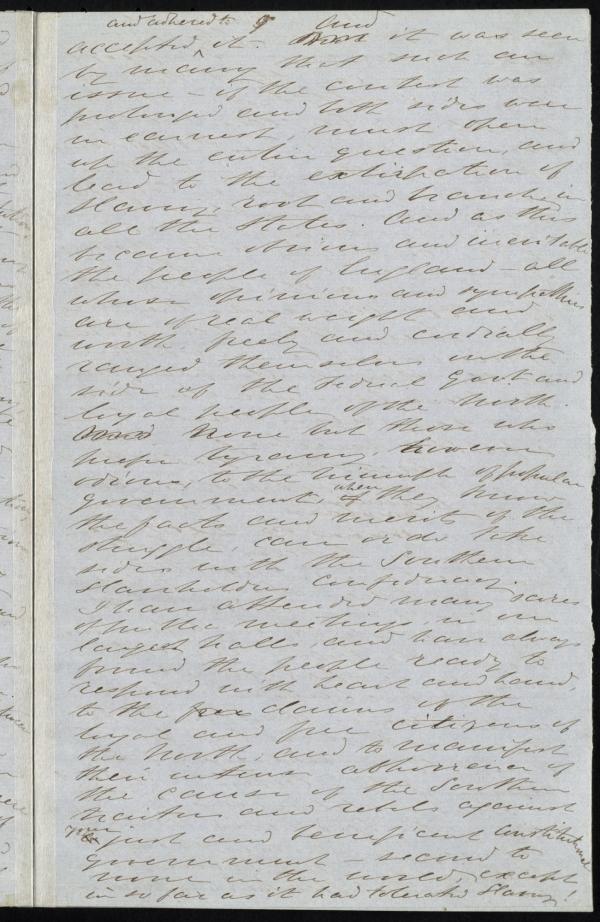 and adhered to and
accepted it. it was seen
by many that such an
issue – if the contest was
prolonged and both sides were
in earnest, must open
up the entire question, and
lead to the extirpation of
Slavery, root and branch in
all the States. And as this
became obvious and inevitable
the people of England – all
whose opinions and sympathies
are of real weight and
worth freely and cordially
ranged themselves on the
side of the Federal Govt and
loyal people of the North.
None but those who
prefer tyranny, however
odious, to the triumph of popular
government, when they know
the facts and merits of the
struggle, can or do take
sides with the Southern
Slaveholding confederacy.
I have attended many scores
of public meetings, in our
largest halls, and have always
found the people ready to
respond with heart and hand,
to the claims of the
loyal and free citizens of
the North, and to manifest
their intense abhorrence of
the cause of the Southern
traitors and rebels against
your just and beneficent constitutional
government – second to
none in the world, except
in so far as it had tolerated Slavery!